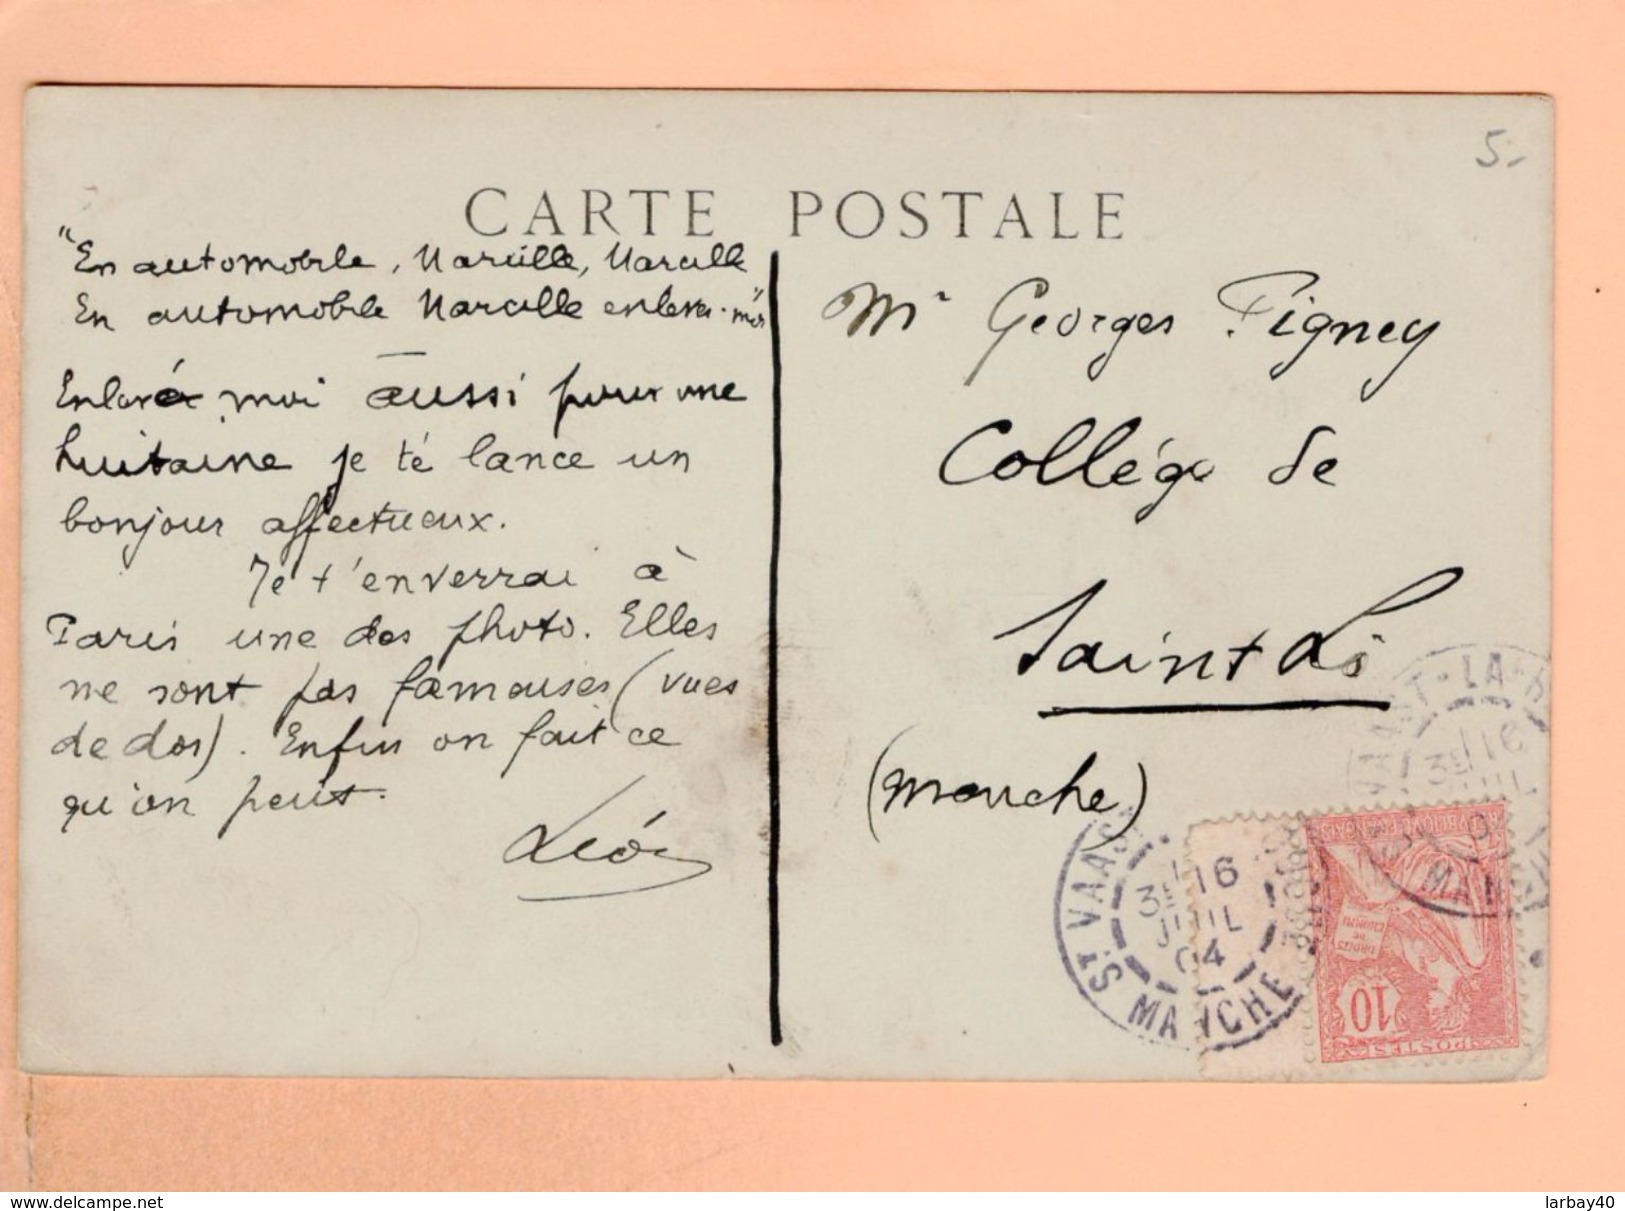 5-
CARTE POSTALE
"En automobile, Marcelle, Marcelle
En automobile Marcelle enlevez-moi"
Enlevé moi aussi pour une
huitaine je te lance un
bonjour affectueux.
Je t'enverrai à
Paris une des photo. Elles
ne sont pas fameuses (vues
de dos). Enfin on fait ce
qu'on peut.
Léon
Mr Georges Pigney
Collége de
Saint Lô
(Manche)
ST VAAST
16
3E
JUIL
04
MANCHE
ST VAAST-LA-H
16
3E
JUIL
MAN
RÉPUBLIQUE FRANÇAISE
DROITS
DE
L'HOMME
10
POSTES
www.delcampe.net
larbay40